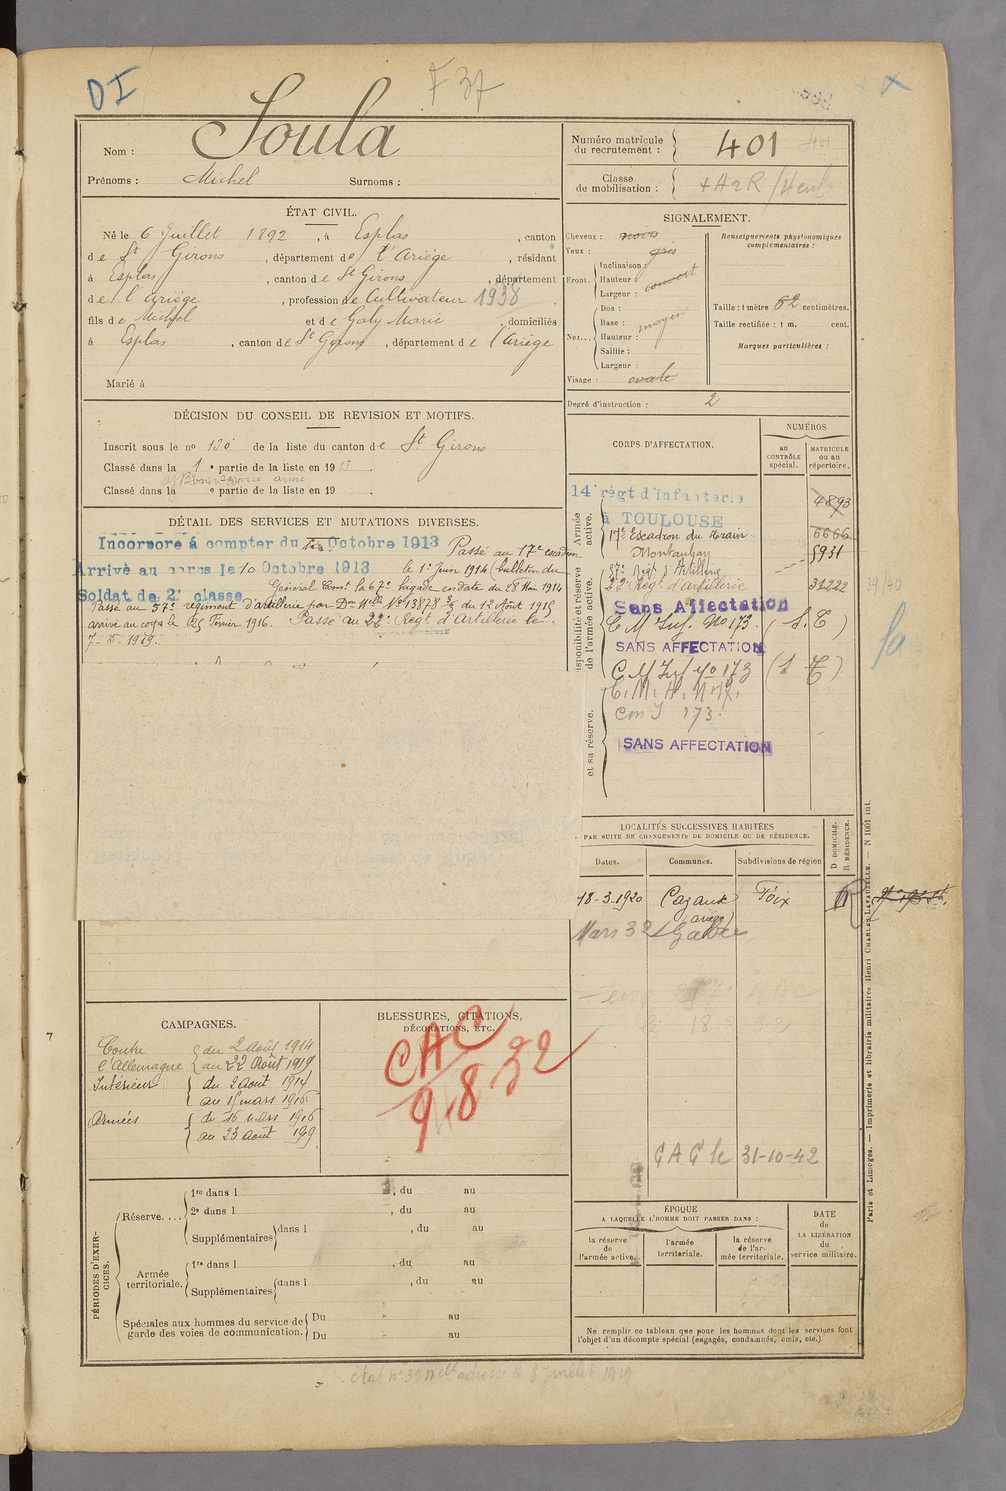 DI
F 37
Nom : Soula
Prénoms : Michel Surnoms :
Numéro matricule du recrutement : 401
Classe de mobilisation :
ÉTAT CIVIL.
Né le 6 Juillet 1892, à Esplas, canton
de St Girons, département de l'Ariège, résidant
à Esplas, canton de St Girons, département
de l'Ariège, profession de Cultivateur 1938
fils de Michel et de Galy Marie, domiciliés
à Esplas, canton de St Girons, département de l'Ariège
Marié à
SIGNALEMENT.
Cheveux : noirs
Yeux : gris
Front. Inclinaison :
Hauteur : couvert
Largeur :
Nez... Dos :
Base : moyen
Hauteur :
Saillie :
Largeur :
Visage : ovale
Renseignements physionomiques complémentaires :
Taille : 1 mètre 62 centimètres.
Taille rectifiée : 1 m. cent.
Marques particulières :
Degré d'instruction : 2
DÉCISION DU CONSEIL DE REVISION ET MOTIFS.
Inscrit sous le no 130 de la liste du canton de St Girons
Classé dans la 1e partie de la liste en 1913.
Classé dans la e partie de la liste en 19 .
CORPS D'AFFECTATION.
NUMÉROS
AU CONTRÔLE spécial.
MATRICULE OU AU répertoire.
Armée active.
14e régt d'infanterie
à TOULOUSE 4893
17e Escadron du train 6666
Montauban 5931
37e Régt d'Artillerie
22e Régt d'artillerie 31222
disponibilité et réserve de l'armée active.
Sans Affectation
C M Inf. No 173. (S. E)
SANS AFFECTATION
C M Inf No 173
et sa réserve.
Cm I 173.
SANS AFFECTATION
DÉTAIL DES SERVICES ET MUTATIONS DIVERSES.
Incorporé à compter du Octobre 1913 Passé au 17e escadron
Arrivé au corps le 10 Octobre 1913 le 1er Juin 1914 (bulletin du
Général Comt la 67e brigade en date du 28 Mai 1914
Soldat de 2e classe
Passé au 57e régiment d'artillerie par Don Melle No 13878 3/3 du 12 Août 1915
arrivé au corps le 25 Février 1916. Passé au 22e Régt d'Artillerie le
7-5-1919.
LOCALITÉS SUCCESSIVES HABITÉES
PAR SUITE DE CHANGEMENTS DE DOMICILE OU DE RÉSIDENCE.
Dates. Communes. Subdivisions de région
D DOMICILE. R RÉSIDENCE.
18-3-1920 Cazaux (Ariège) Foix
Mars 32 Gabre
C A C le 31-10-42
CAMPAGNES.
Contre l'Allemagne du 2 Août 1914
au 22 Août 1919
Intérieur du 2 Août 1914
au 15 mars 1916
Armées du 16 mars 1916
au 23 Août 1919
BLESSURES, CITATIONS,
DÉCORATIONS, ETC.
CAC
9-8 32
PÉRIODES D'EXERCICES.
Réserve.... 1re dans l , du au
2e dans l , du au
Supplémentaires dans l , du au
Armée territoriale. 1re dans l , du au
Supplémentaires dans l , du au
Spéciales aux hommes du service de garde des voies de communication. Du au
Du au
ÉPOQUE
A LAQUELLE L'HOMME DOIT PASSER DANS :
la réserve de l'armée active.
l'armée territoriale.
la réserve de l'armée territoriale.
DATE de LA LIBÉRATION du service militaire.
Ne remplir ce tableau que pour les hommes dont les services font
l'objet d'un décompte spécial (engagés, condamnés, omis, etc.).
Paris et Limoges. — Imprimerie et librairie militaires Henri CHARLES-LAVAUZELLE. — N 1001 int.
état no 39 adressé le 8 Juillet 1919